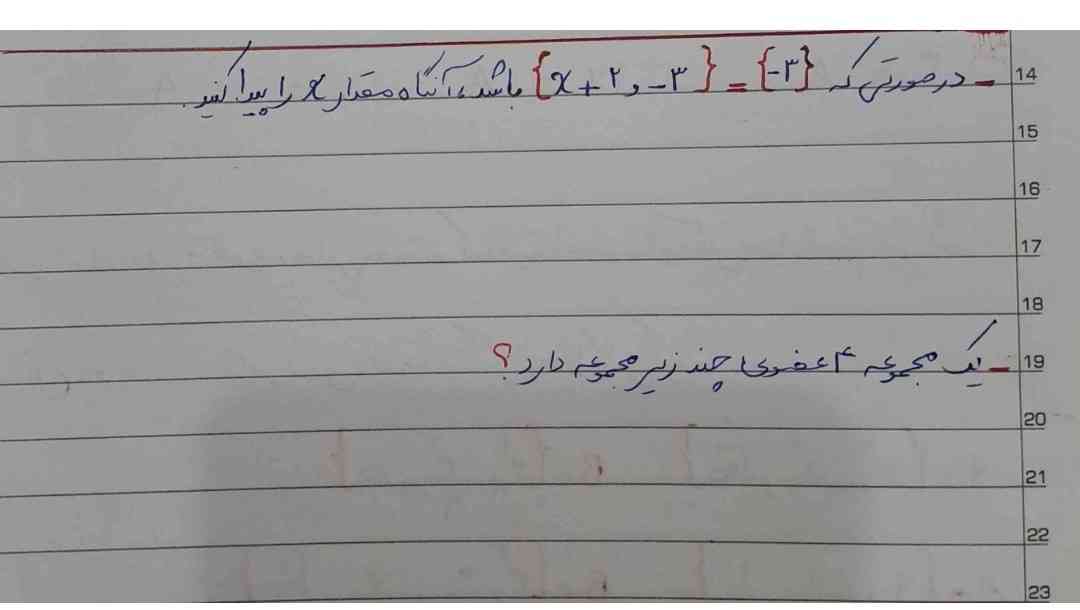 14 - در صورتی که {-۳} = {x + ۲ و -۳} باشد، آنگاه مقدار x را پیدا کنید.
15
16
17
18
19 - یک مجموعه ۴ عضوی چند زیر مجموعه دارد؟
20
21
22
23